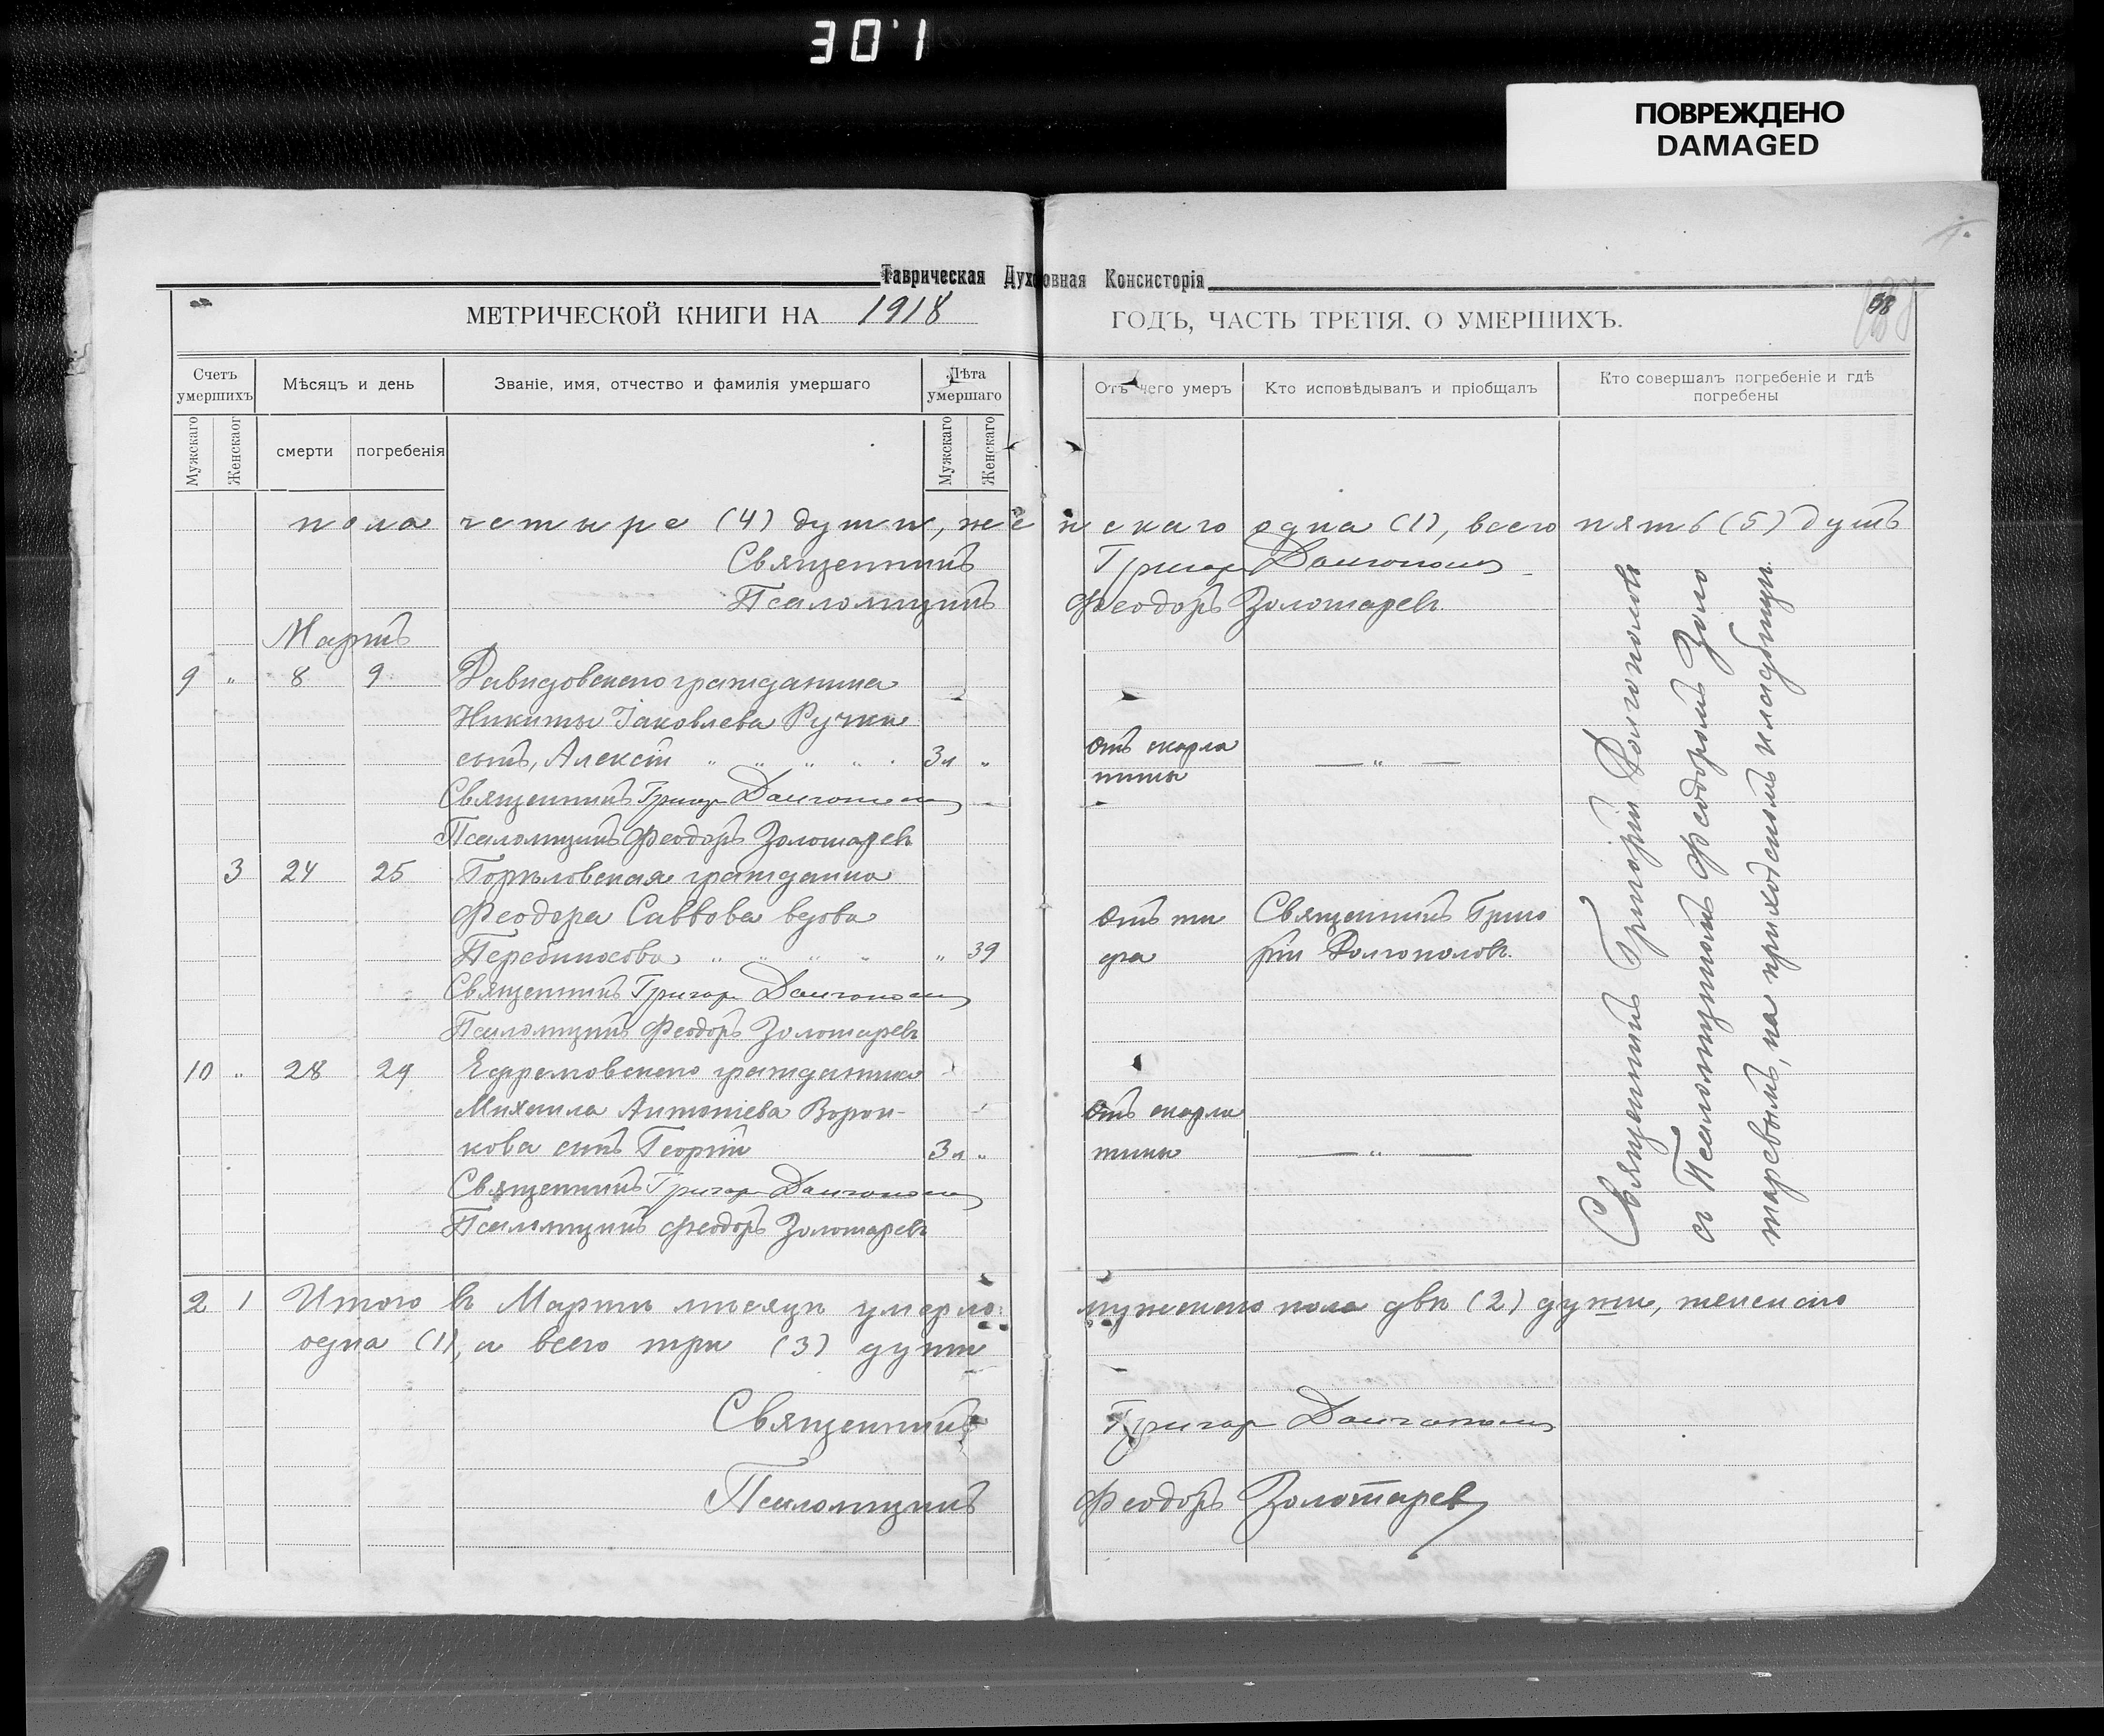 30'1
ПОВРЕЖДЕНО
DAMAGED
Таврическая Духовная Консисторія
МЕТРИЧЕСКОЙ КНИГИ НА 1918 ГОДЪ, ЧАСТЬ ТРЕТІЯ, О УМЕРШИХЪ.
58
Счетъ умершихъ
Мѣсяцъ и день
Званіе, имя, отчество и фамилія умершаго
Лѣта умершаго
Отъ чего умеръ
Кто исповѣдывалъ и пріобщалъ
Кто совершалъ погребеніе и гдѣ погребены
Мужскаго
Женскаго
смерти
погребенія
Мужскаго
Женскаго
пола четыре (4) души, женскаго одна (1), всего пять (5) душъ
Священникъ Григорій Долгополовъ
Псаломщикъ Феодоръ Золотаревъ
Мартъ
9 " 8 9 Давидовскаго гражданина
Никиты Іаковлева Ручки
сынъ, Алексій " " " " 3 л " Отъ скарла
тины — " —
Священникъ Григорій Долгополовъ
Псаломщикъ Феодоръ Золотаревъ
3 24 25 Горѣловская гражданка
Феодора Саввова вдова Отъ ти Священникъ Григо
Перебиносова " " " " " 39 фа рій Долгополовъ.
Священникъ Григорій Долгополовъ
Псаломщикъ Феодоръ Золотаревъ
10 " 28 29 Ефремовскаго гражданина
Михаила Антоніева Ворон- Отъ скарла
кова сынъ Георгій 3 л " тины — " —
Священникъ Григорій Долгополовъ
Псаломщикъ Феодоръ Золотаревъ
Священникъ Григорій Долгополовъ
съ Псаломщикомъ Феодоромъ Золо
таревымъ, на приходскомъ кладбищѣ.
2 1 Итого въ Мартѣ мѣсяцѣ умерло: мужескаго пола двѣ (2) души, женскаго
одна (1), а всего три (3) души
Священникъ Григорій Долгополовъ
Псаломщикъ Феодоръ Золотаревъ